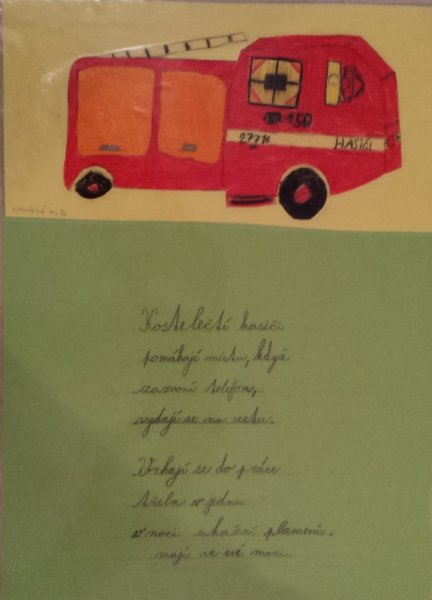 150
2771
HASIČI
Kostelečtí hasiči
pomáhají městu, když
zazvoní telefon,
vydají se na cestu.
Vrhají se do práce
třeba v jednu
v noci uhašení plamenů.
mají ve své moci.